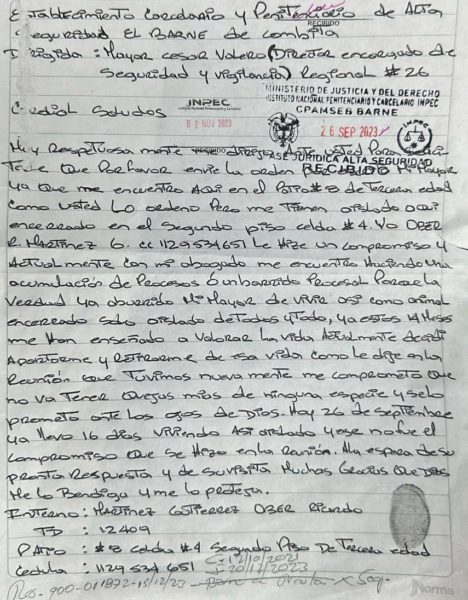 Establecimiento Carcelario y Penitenciario de Alta
Seguridad EL BARNE de Combita
RECIBIDO
Dirigida : Mayor Cesar Valero (Director encargado de
Seguridad y Vigilancia) Regional # 26
MINISTERIO DE JUSTICIA Y DEL DERECHO
INSTITUTO NACIONAL PENITENCIARIO Y CARCELARIO INPEC
CPAMSEB BARNE
Cordial Saludos
INPEC
02 NOV 2023
26 SEP 2023
JURIDICA ALTA SEGURIDAD
RECIBIDO
Muy Respetuosa mente dirijo ante Usted Para
Que Por favor envie la orden Mi Mayor
ya que me encuentro AQUI en el Patio # 8 de Tercera edad
como usted Lo ordeno Pero me Tienen aislado aqui
encerrado en el Segundo piso celda # 4. Yo OBER
R. MARTINEZ G. cc 1129534651 Le Hize un compromiso y
Actualmente con mi abogado me encuentro Haciendo una
acumulación de Procesos ó un barrido Procesal Porque la
Verdad ya aburrido Mi Mayor de Vivir asi como animal
encerrado solo aislado de Todos y Todo, ya estos 14 Meses
me Han enseñado a Valorar la Vida Actualmente decidi
Apartarme y Retirarme de esa vida como le dije en la
Reunión que Tuvimos nueva mente me comprometo que
no va Tener Quejas mias de ninguna especie y se lo
prometo ante Los ojos de Dios. Hoy 26 de septiembre
ya llevo 16 dias Viviendo Asi aislado y ese no fue el
compromiso Que se Hizo en la Reunión. A la espera de su
pronta Respuesta y de su visita Muchas Gracias Que DIOS
Me lo Bendiga y me lo proteja.
Interno : MARTINEZ GUTIERREZ OBER Ricardo
TD : 12409
PATIO : # 8 celda # 4 Segundo Piso De Tercera edad
Cedula : 1129 534 651
20/12/2023
Norma